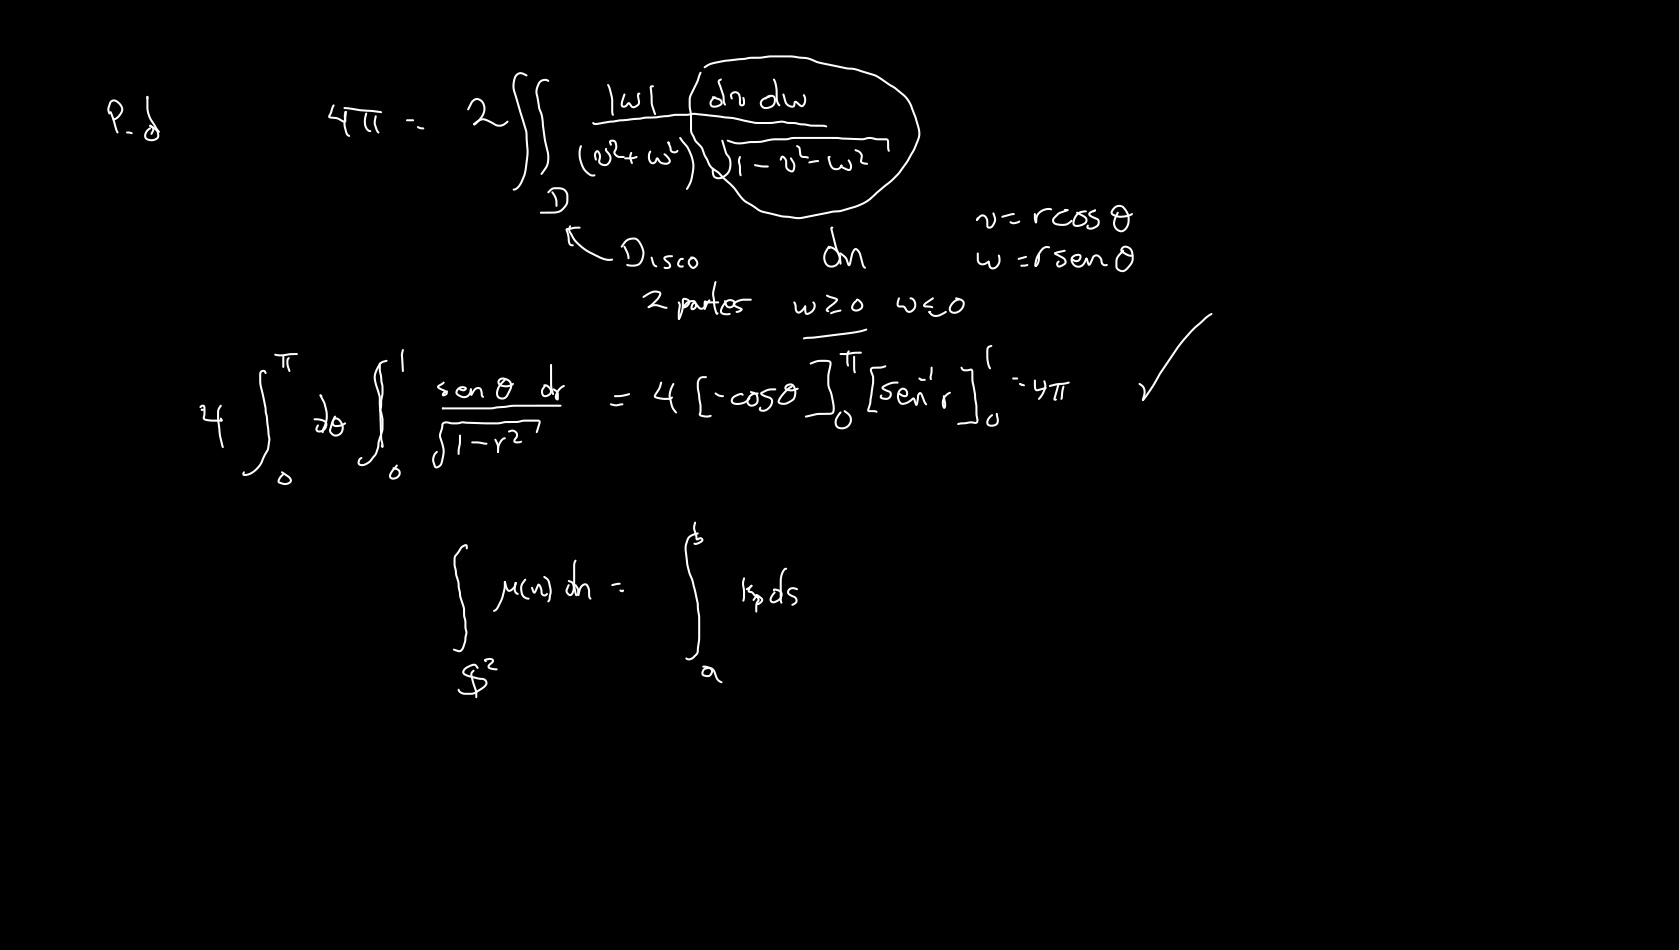 P.d 4π = 2 ∬_D |w| dv dw / ((v²+w²) √(1-v²-w²))
v = r cos θ
Disco dn w = r sen θ
2 partes w ≥ 0 w ≤ 0
4 ∫_0^π dθ ∫_0^1 sen θ dr / √(1-r²) = 4 [-cos θ]_0^π [sen⁻¹ r]_0^1 = 4π ✓
∫_{𝕊²} μ(n) dn = ∫_a^b k_p ds